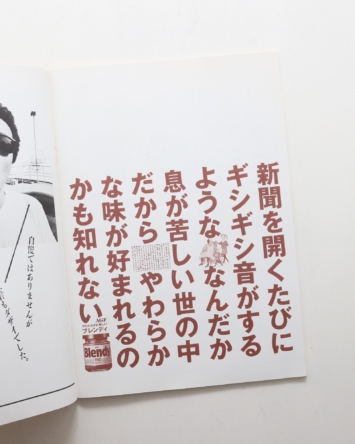 新聞を開くたびに
ギシギシ音がする
ようななんだか
息が苦しい世の中
だからやわらか
な味が好まれるの
かも知れない
AGF
ブレンディ
Blendy
自慢ではありませんが